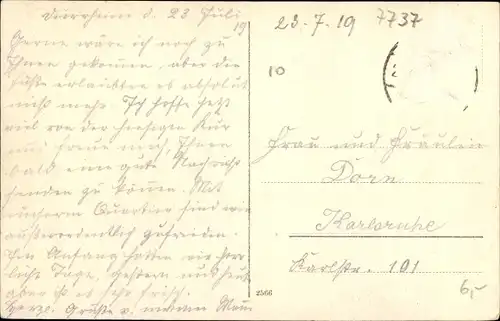 Dürrheim d. 23 Juli
19
Gerne wäre ich noch zu
Ihnen gekommen, aber die
Füße erlaubten es absolut
nicht mehr. Ich hoffe jetzt
viel von der hiesigen Kur
und freue mich, Ihnen
bald eine gute Nachricht
senden zu können. Mit
unserem Quartier sind wir
außerordentlich zufrieden.
Im Anfang hatten wir herr
liche Tage, gestern und heute
aber ist es sehr frisch.
Herzl. Grüße v. meinem Mann
23-7-19 7737
10
Frau und Fräulein
Dorn
Karlsruhe
Karlstr. 101
2566
6,-